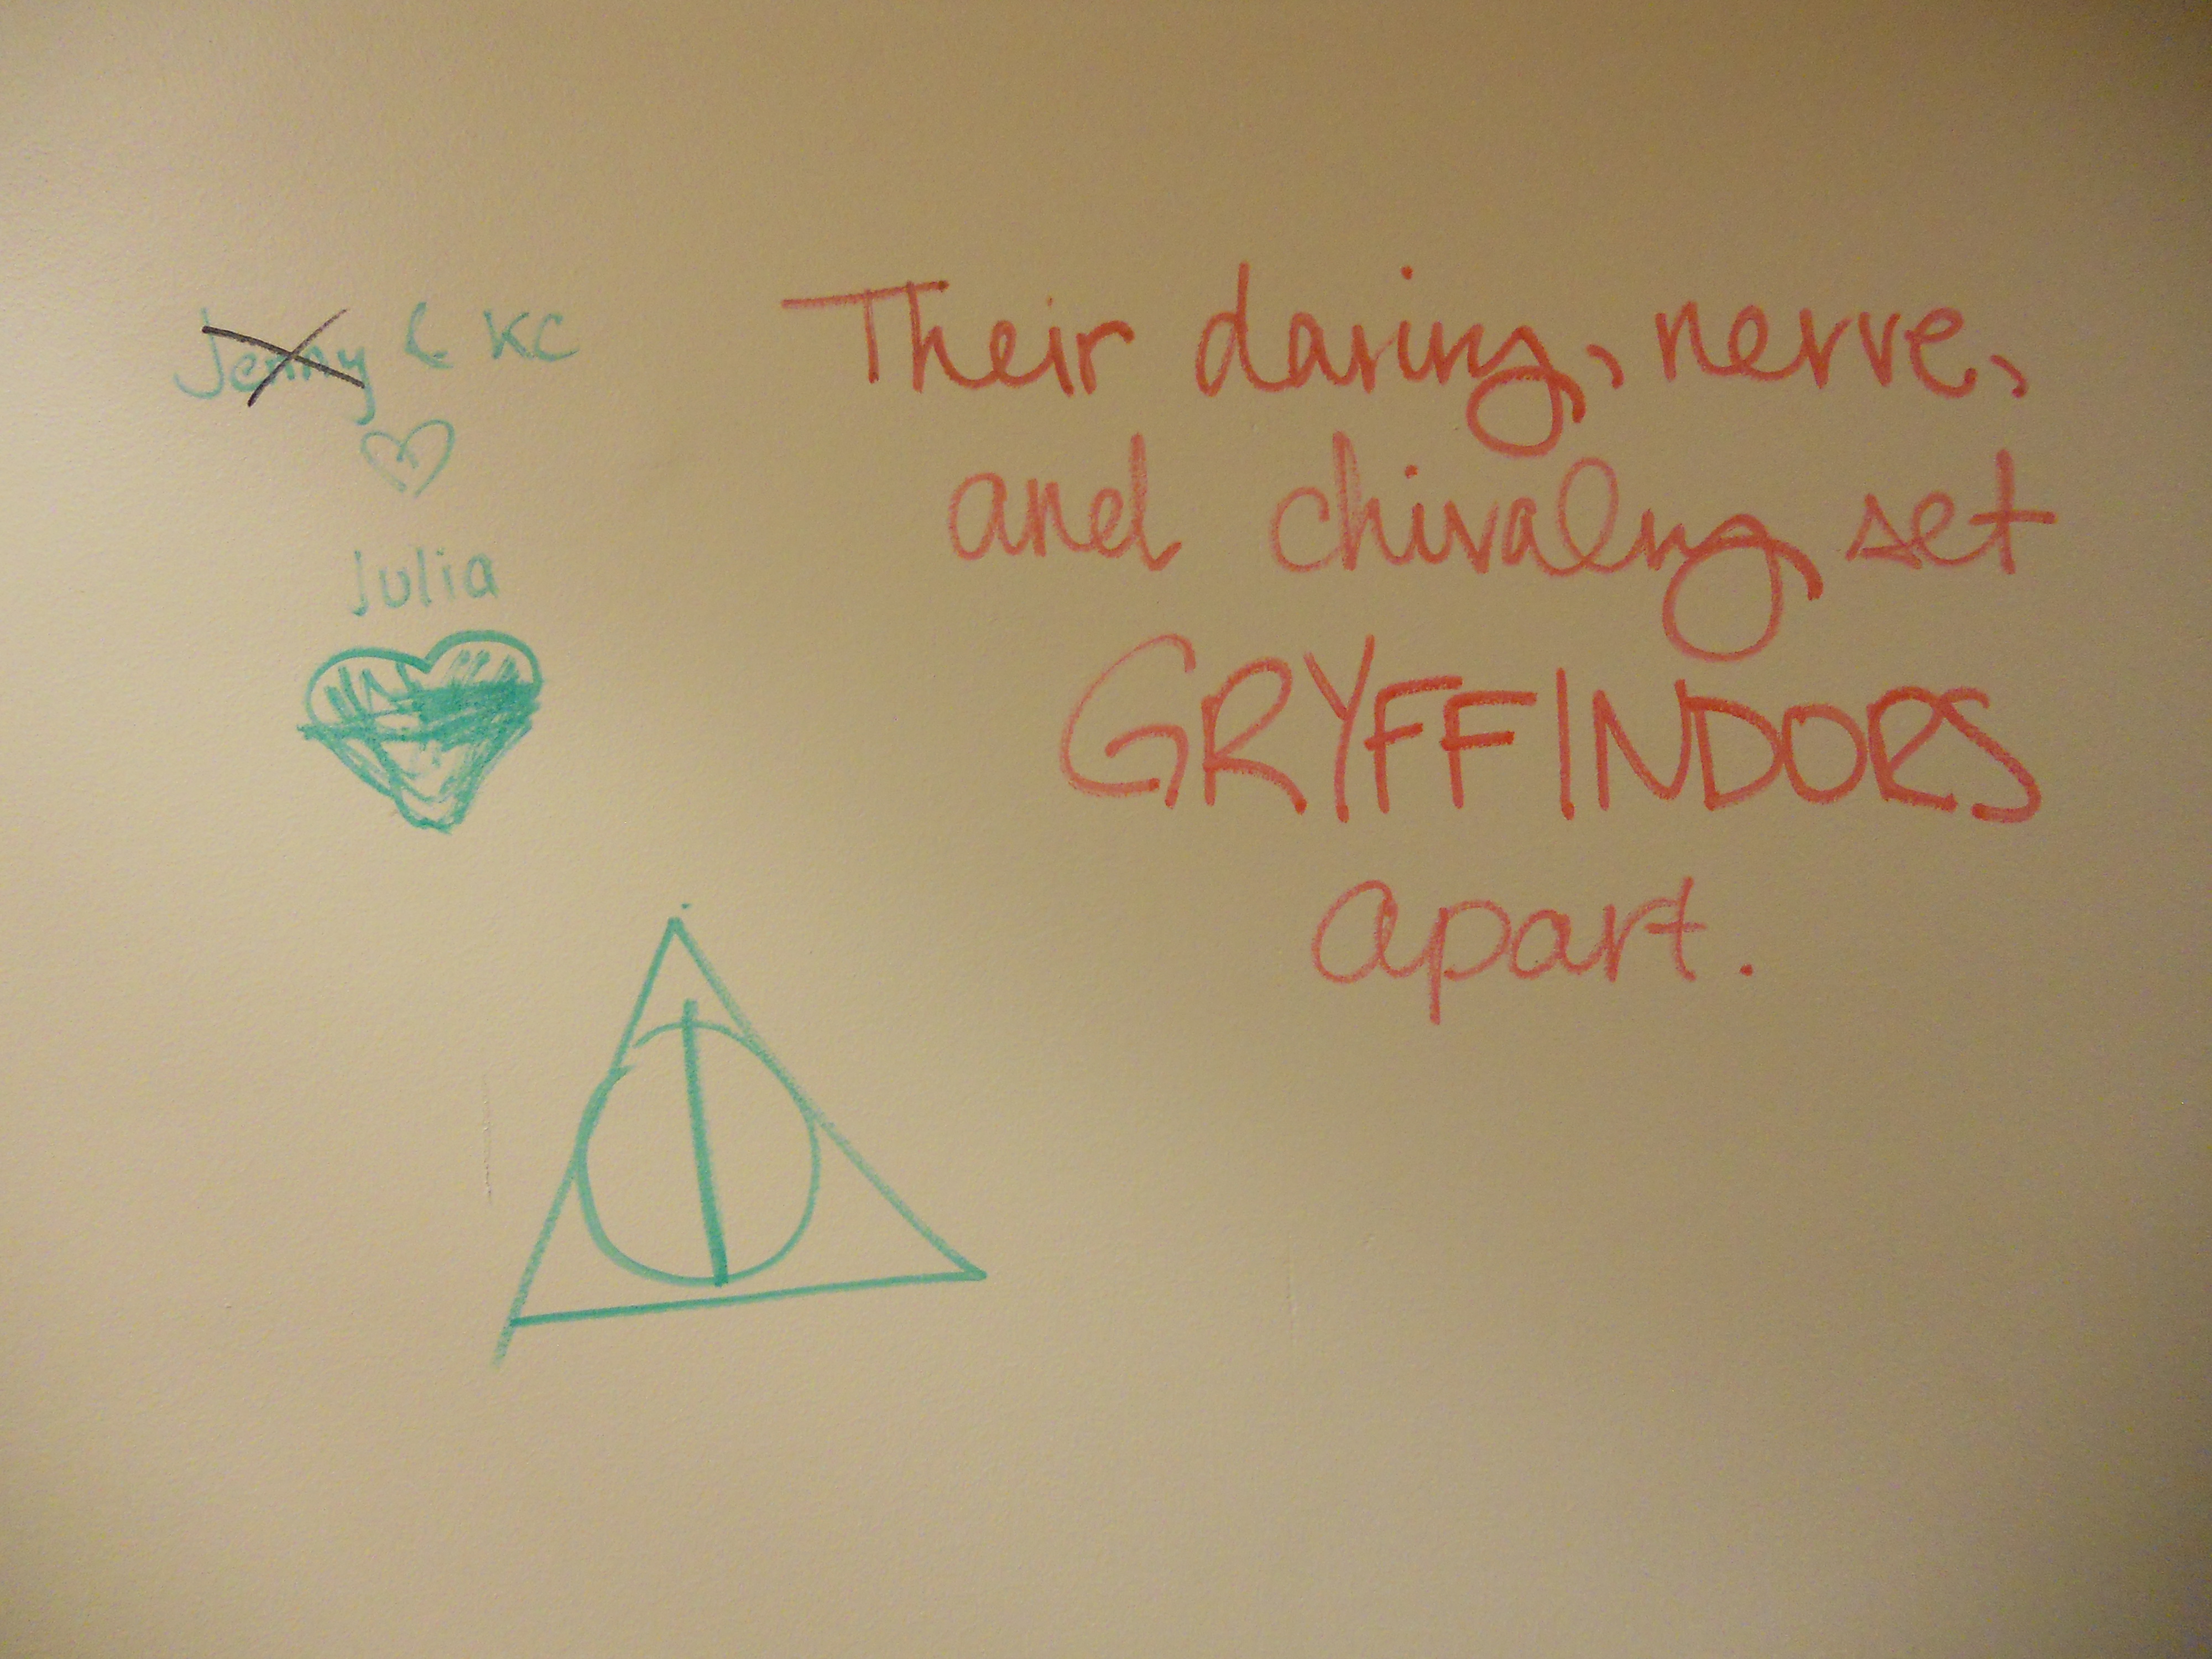 Jenny & KC
Julia
Their daring, nerve,
and chivalry set
GRYFFINDORS
apart.